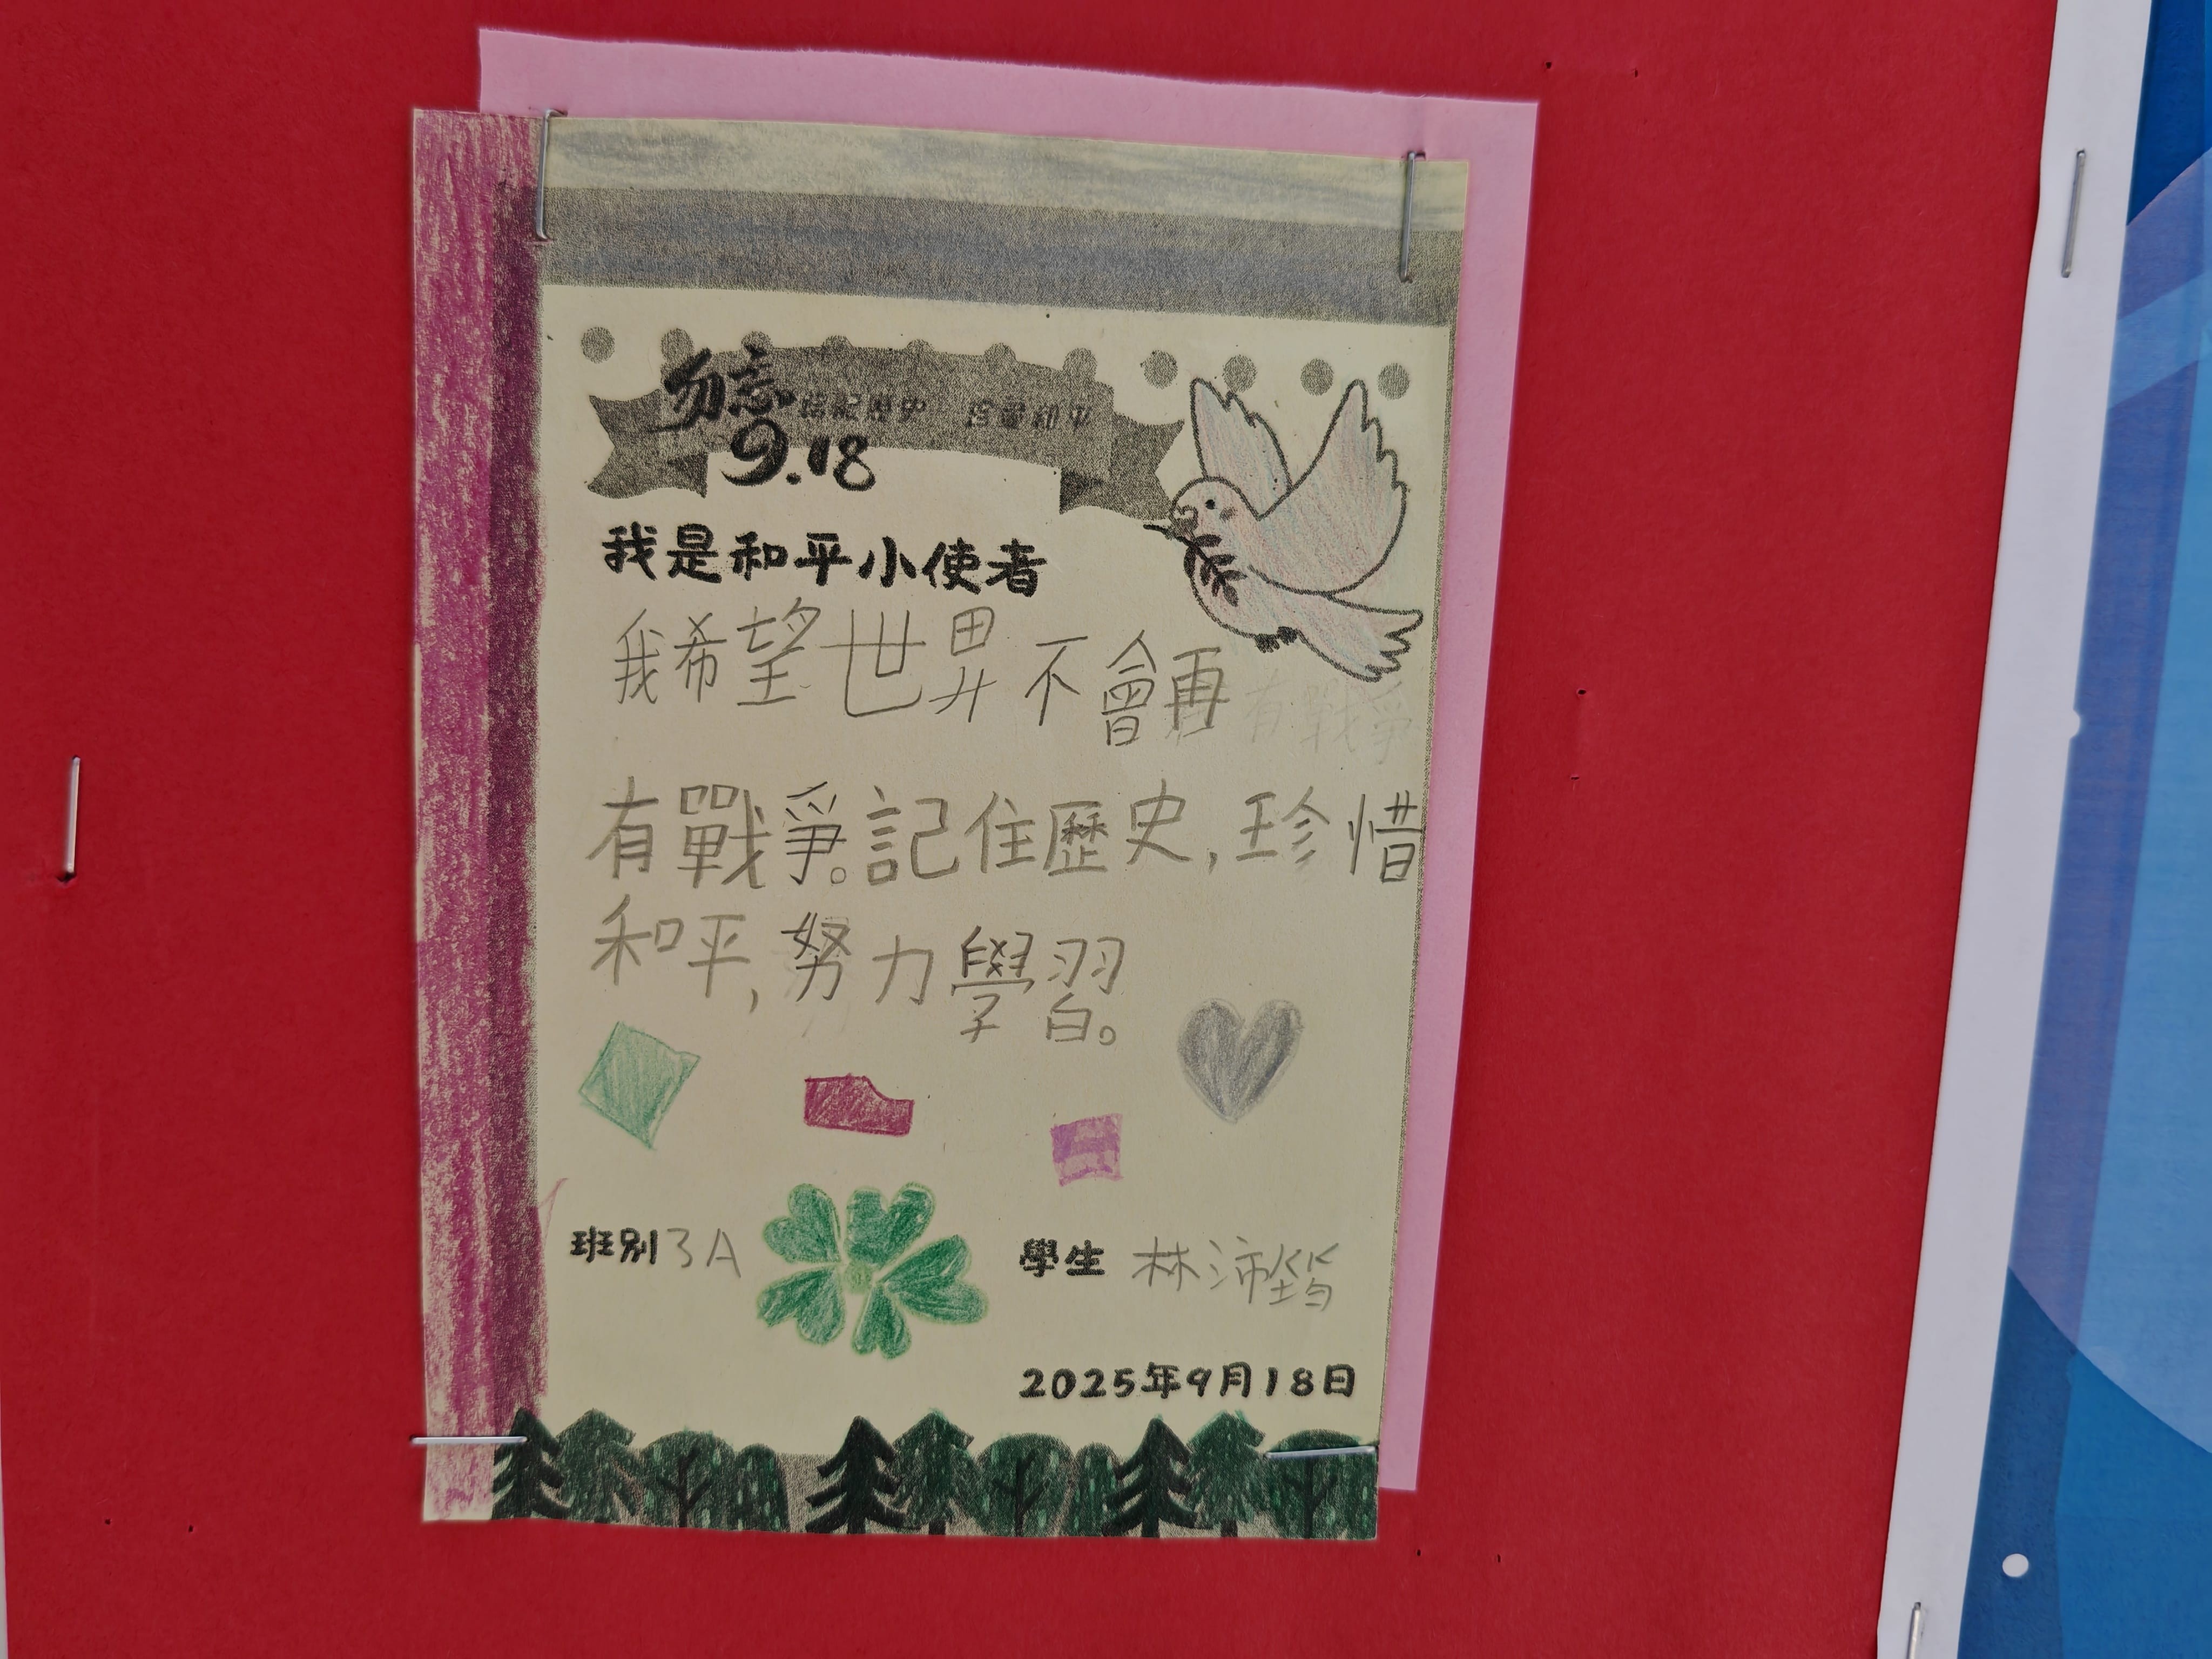 勿忘
銘記歷史 珍愛和平
9.18
我是和平小使者
我希望世界不會再
有戰爭
有戰爭。記住歷史，珍惜
和平，努力學習。
班別 3A
學生 林沛
2025年9月18日